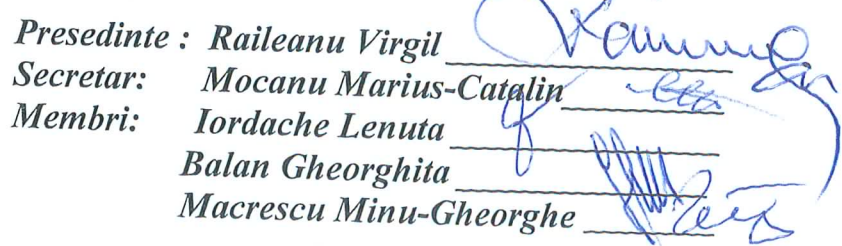 Presedinte : Raileanu Virgil
Secretar: Mocanu Marius-Catalin
Membri: Iordache Lenuta
Balan Gheorghita
Macrescu Minu-Gheorghe